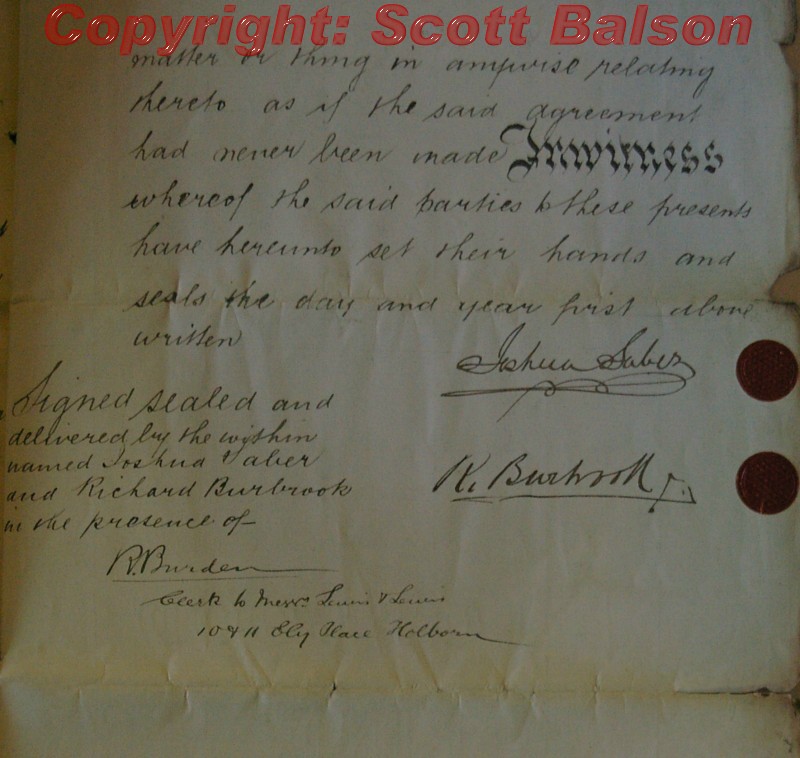 Copyright: Scott Balson
matter or thing in anywise relating
thereto as if the said agreement
had never been made In witness
whereof the said parties to these presents
have hereunto set their hands and
seals the day and year first above
written
Joshua Saber
Signed sealed and
delivered by the within
named Joshua Saber
and Richard Burbrook
in the presence of
K. Burbrook
R. Burden
Clerk to Messrs Lewis & Lewis
10 & 11 Ely Place Holborn